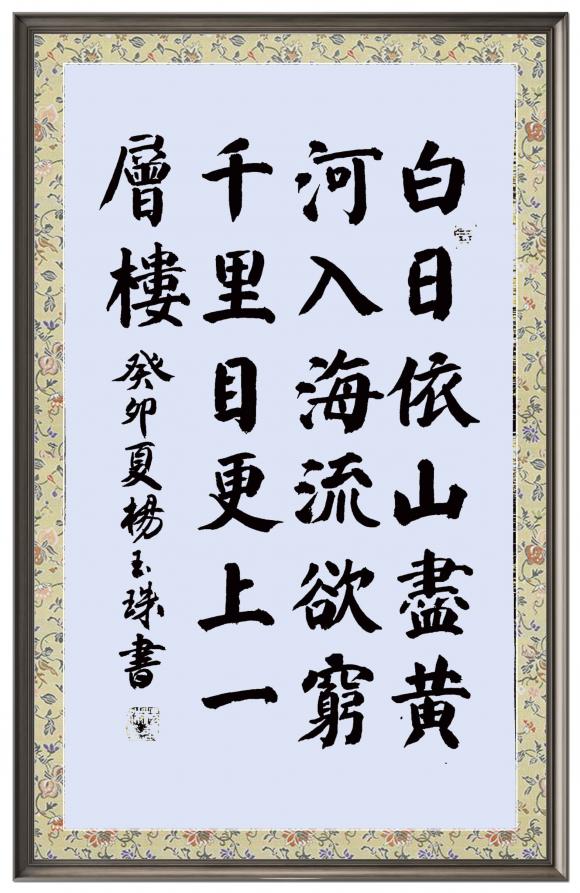 白日依山盡黄
河入海流欲窮
千里目更上一
層樓
癸卯夏楊玉珠書